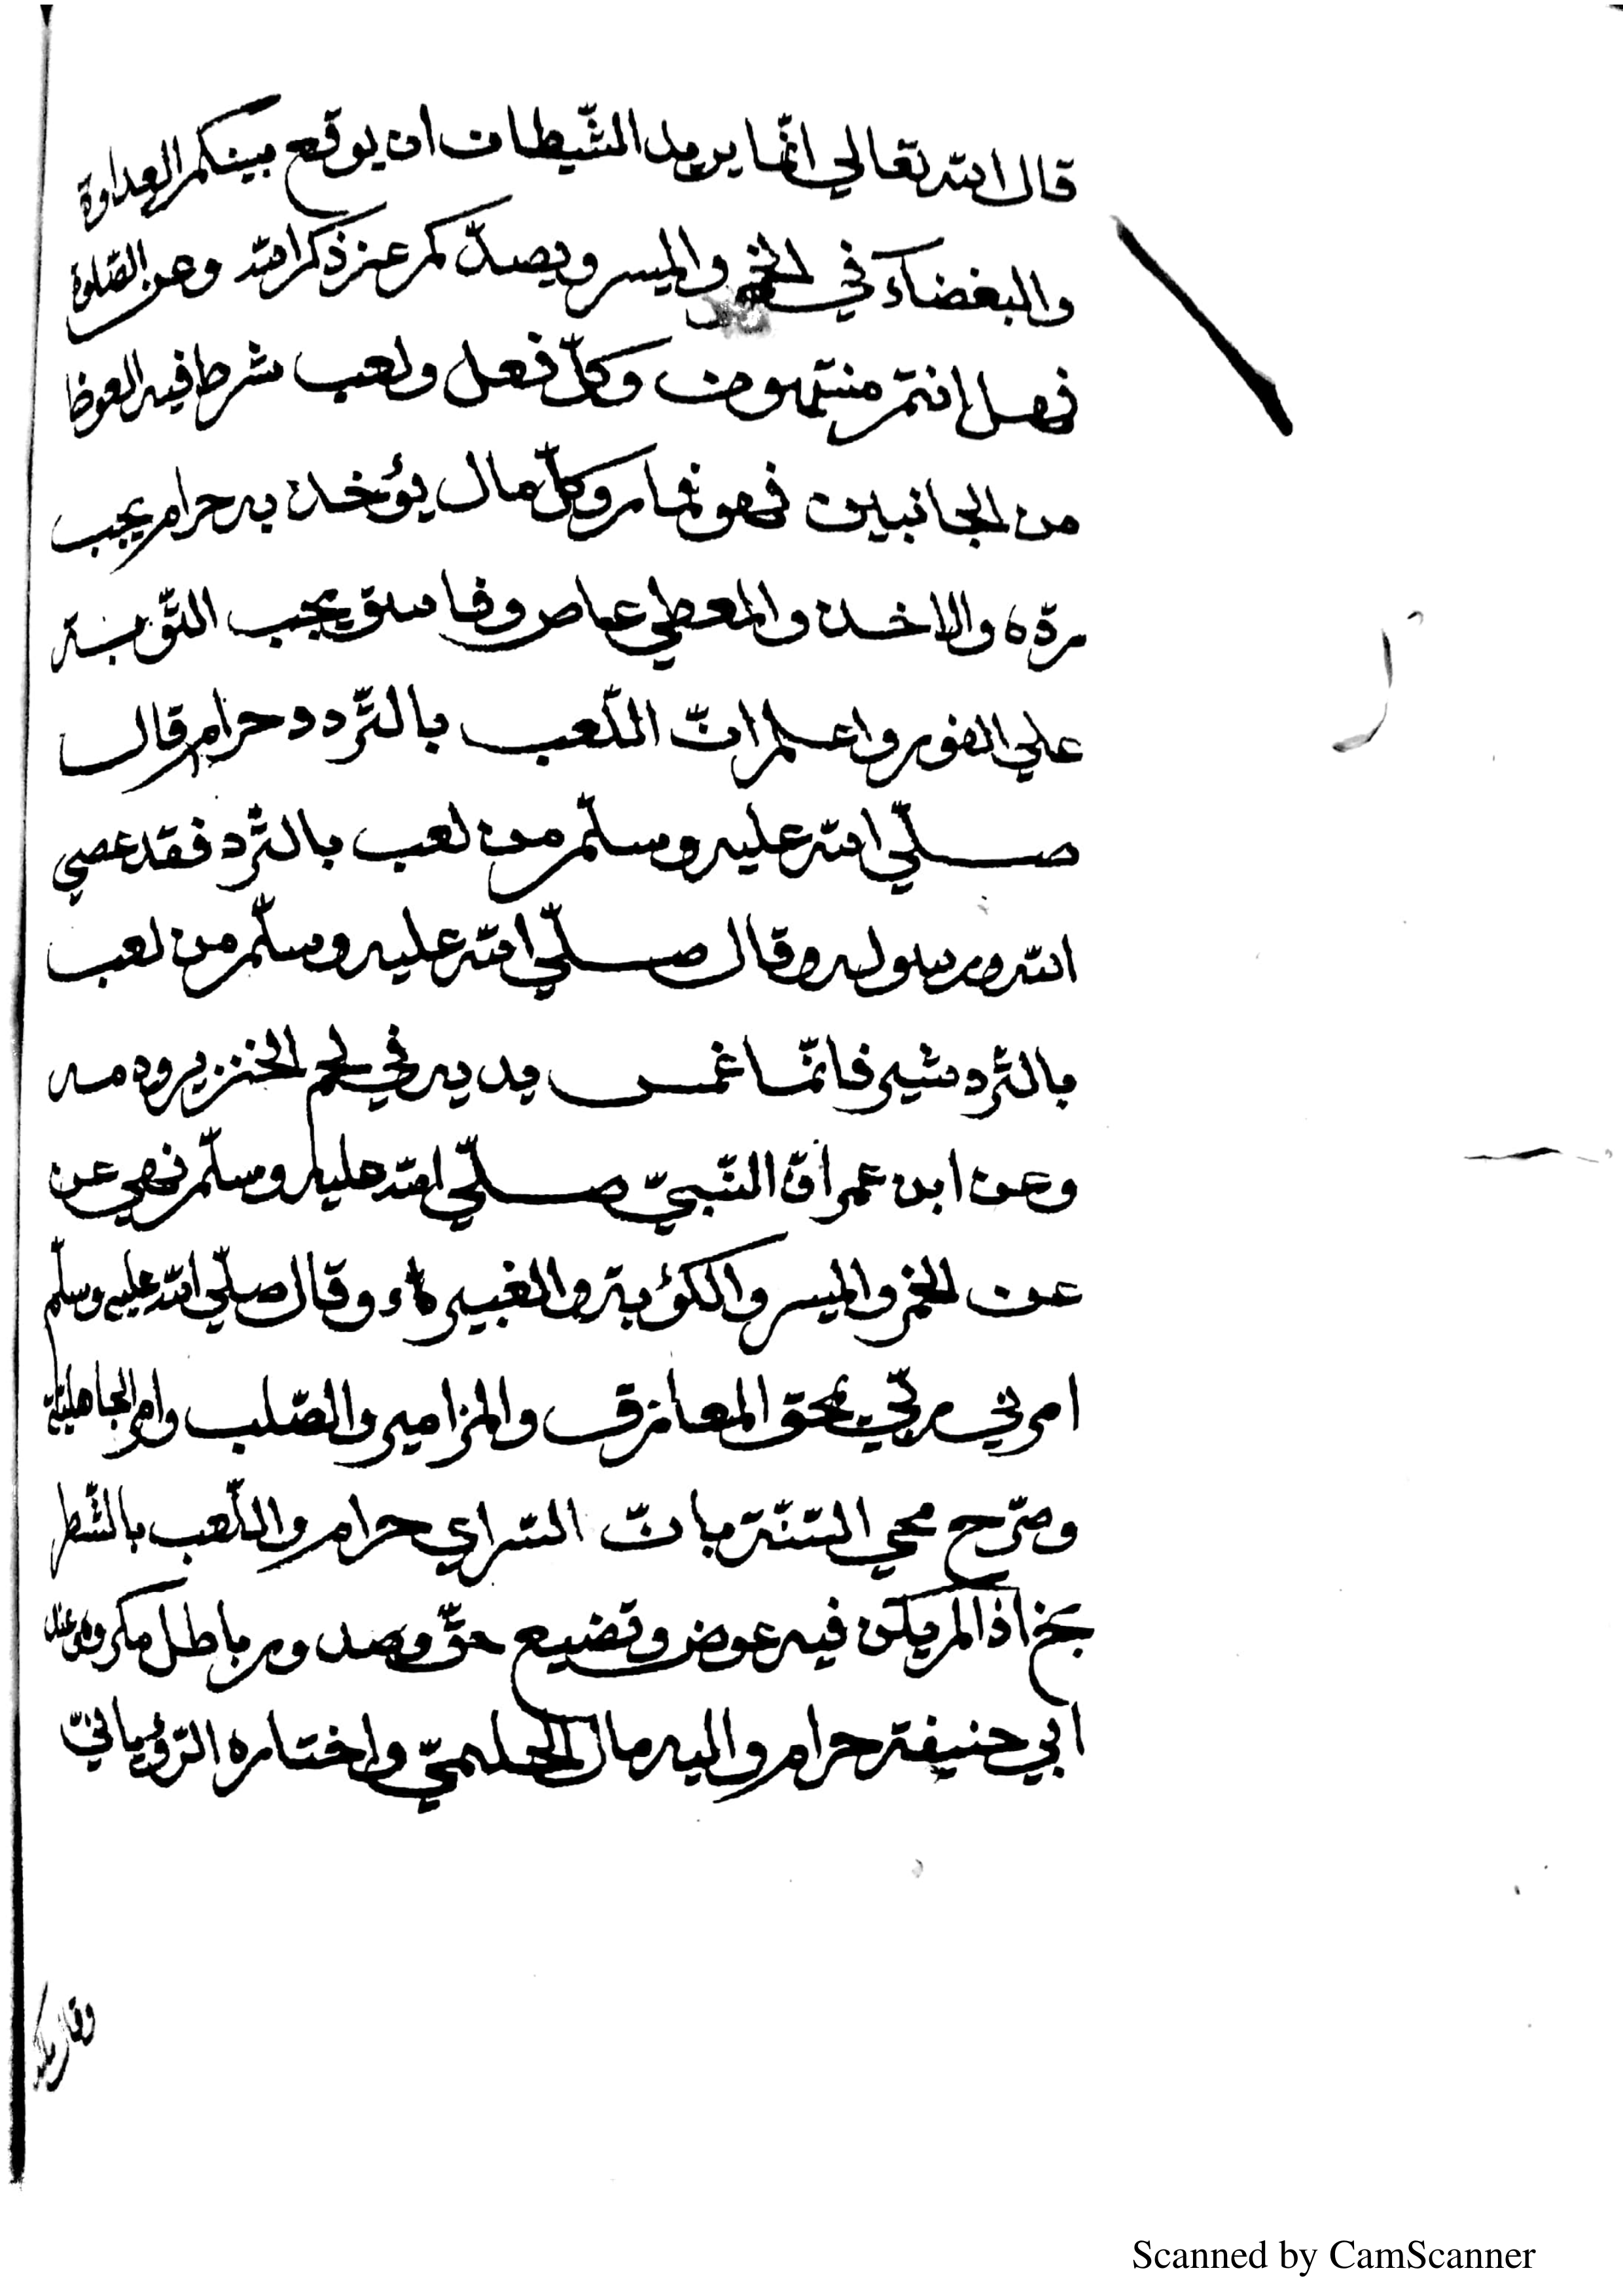 قال الله تعالي انّما يريد الشّيطان ان يوقع بينكم العداوة
والبغضاء في الخمر والميسر ويصدّكم عن ذكر الله وعن الصّلوة
فهل انتم منتهون وكلّ فعل ولعب شرط فيه العوض
من الجانبين فهو قمار وكلّ مال يؤخذ به حرام يجب
ردّه والاخذ والمعطي عاص وفاسق يجب التّوبة
علي الفور واعلم انّ اللّعب بالنّرد حرام قال
صلّي الله عليه وسلّم من لعب بالنّرد فقد عصي
الله ورسوله وقال صلّي الله عليه وسلّم من لعب
بالنّردشير فانّما غمس يديه في لحم الخنزير ودمه
وعن ابن عمر انّ النّبيّ صلّي الله عليه وسلّم نهي عن
عن الخمر والميسر والكؤبة والغبيراء وقال صلّي الله عليه وسلّم
امرني ربّي بمحق المعازف والمزامير والصّلب وامر الجاهليّة
وصرّح محي السّنّة بانّ النراعي حرام واللّعب بالشّطر
نج اذا لم يكن فيه عوض وتضييع حقّ وصدور باطل مكروه وعند
ابي حنيفة حرام واليه مال الحليميّ واختاره الرّؤيانيّ
Scanned by CamScanner